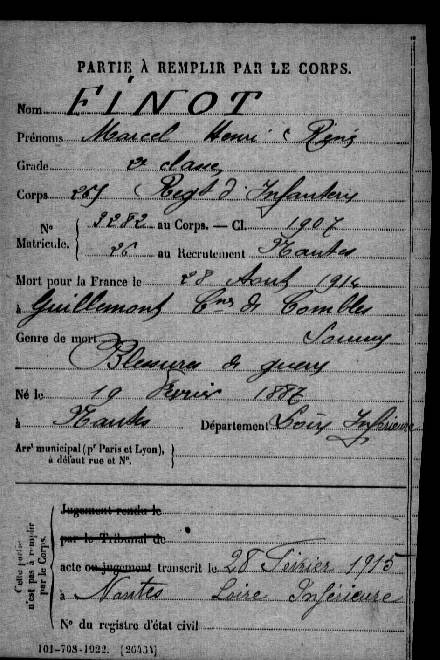 PARTIE À REMPLIR PAR LE CORPS.
Nom FINOT
Prénoms Marcel Henri Régis
Grade 2e classe
Corps 265 Regt d'Infanterie
Nº 9282 au Corps. — Cl. 1907
Matricule. 26 au Recrutement Nantes
Mort pour la France le 28 Aout 1914
à Guillemont Cne de Combles
Genre de mort Somme
Blessures de guerre
Né le 19 Février 1887
à Nantes Département Loire Inférieure
Arrt municipal (pr Paris et Lyon),
à défaut rue et Nº.
Cette partie
n'est pas à remplir
par le Corps.
Jugement rendu le
par le Tribunal de
acte ou jugement transcrit le 28 Février 1915
à Nantes Loire Inférieure
Nº du registre d'état civil
101-708-1922.